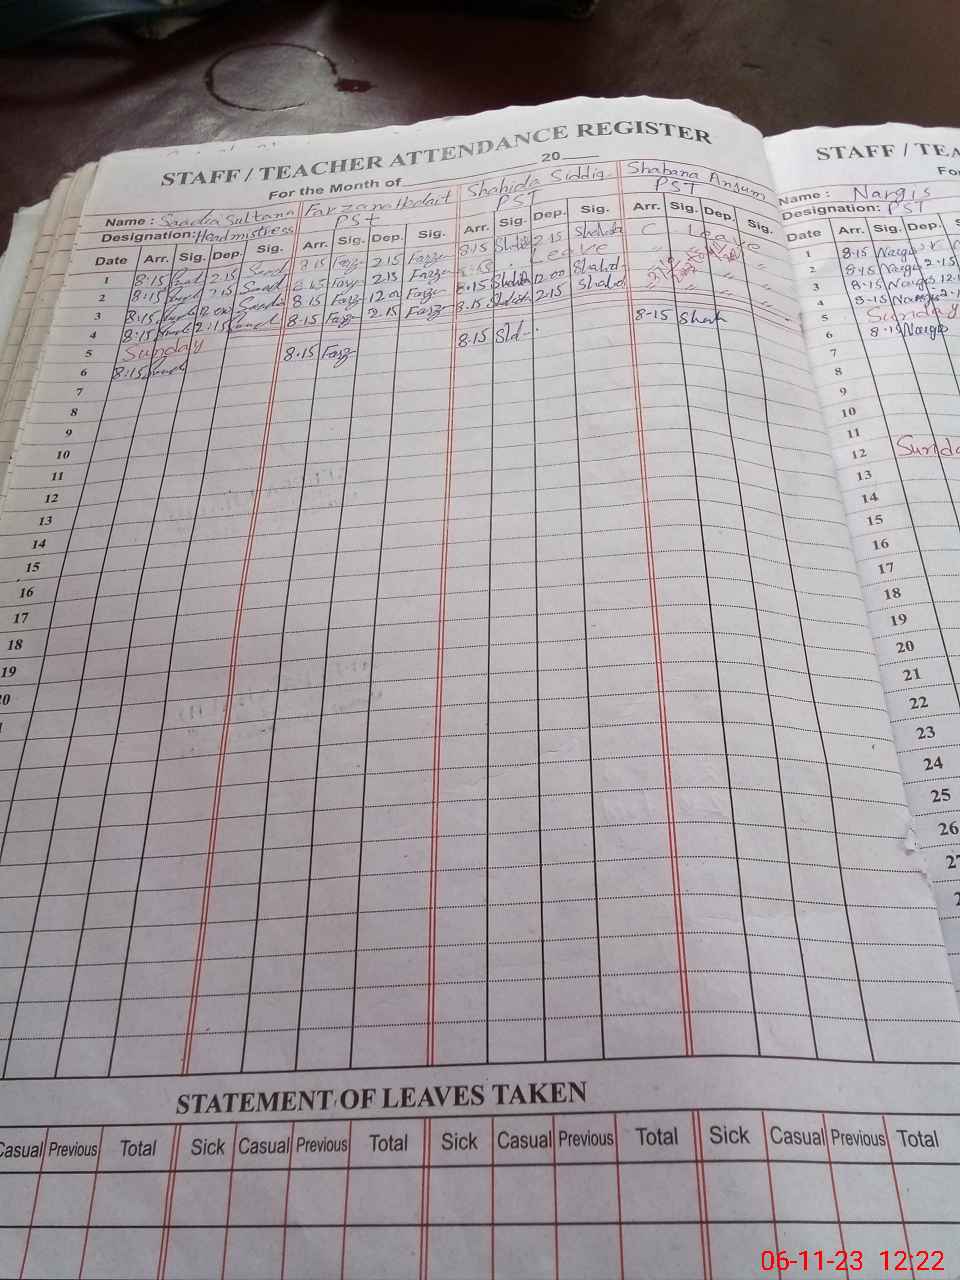 STAFF / TEACHER ATTENDANCE REGISTER
For the Month of 20
Name : Saadia Sultana Farzana Shahida Siddiq Shabana Anjum
Designation: Headmistress PSt PST PST
Date Arr. Sig. Dep. Sig. Arr. Sig. Dep. Sig. Arr. Sig. Dep. Sig. Arr. Sig. Dep. Sig.
1 8:15 2:15 8:15 Farz 2.15 Farz 8:15 Shahida 2.15 Shahida C Leave
2 8:15 2:15 8:15 Farz 2.15 Farz Leave
3 8:15 12:00 8:15 Farz 12.00 Farz 8.15 Shahida 12.00 Shahid
4 8:15 2:15 8.15 Farz 2.15 Farz 8.15 Shahida 2.15 Shahid
5 Sunday
6 8:15 8.15 Farz 8.15 8-15
7
8
9
10
11
12
13
14
15
16
17
18
19
20
STATEMENT OF LEAVES TAKEN
Casual Previous Total Sick Casual Previous Total Sick Casual Previous Total Sick Casual Previous Total
STAFF / TEA
Fo
Name : Nargis
Designation: PST
Date Arr. Sig. Dep. S
1 8.15 Nargis
2 8.15 Nargis 2.15
3 8.15 Nargis 12.
4 8.15 Nargis 2.
5 Sunday
6 8.15 Nargis
7
8
9
10
11
12 Sunda
13
14
15
16
17
18
19
20
21
22
23
24
25
26
27
2
06-11-23 12:22